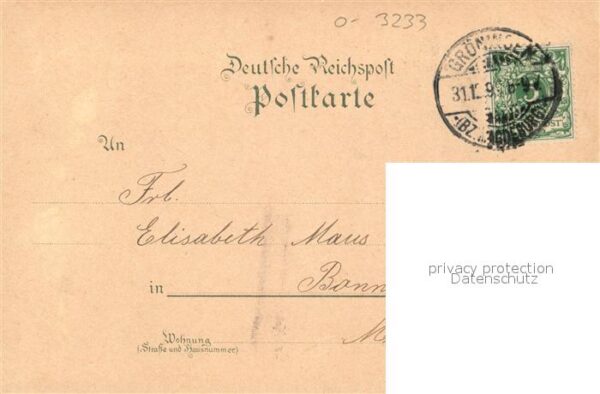 0- 3233
Deutsche Reichspost
Postkarte
GRÖNINGEN
31.12.9
(BZ. MAGDEBURG)
5
An
Frl.
Elisabeth Maus
in Bonn
Wohnung
(Straße und Hausnummer)
privacy protection
Datenschutz